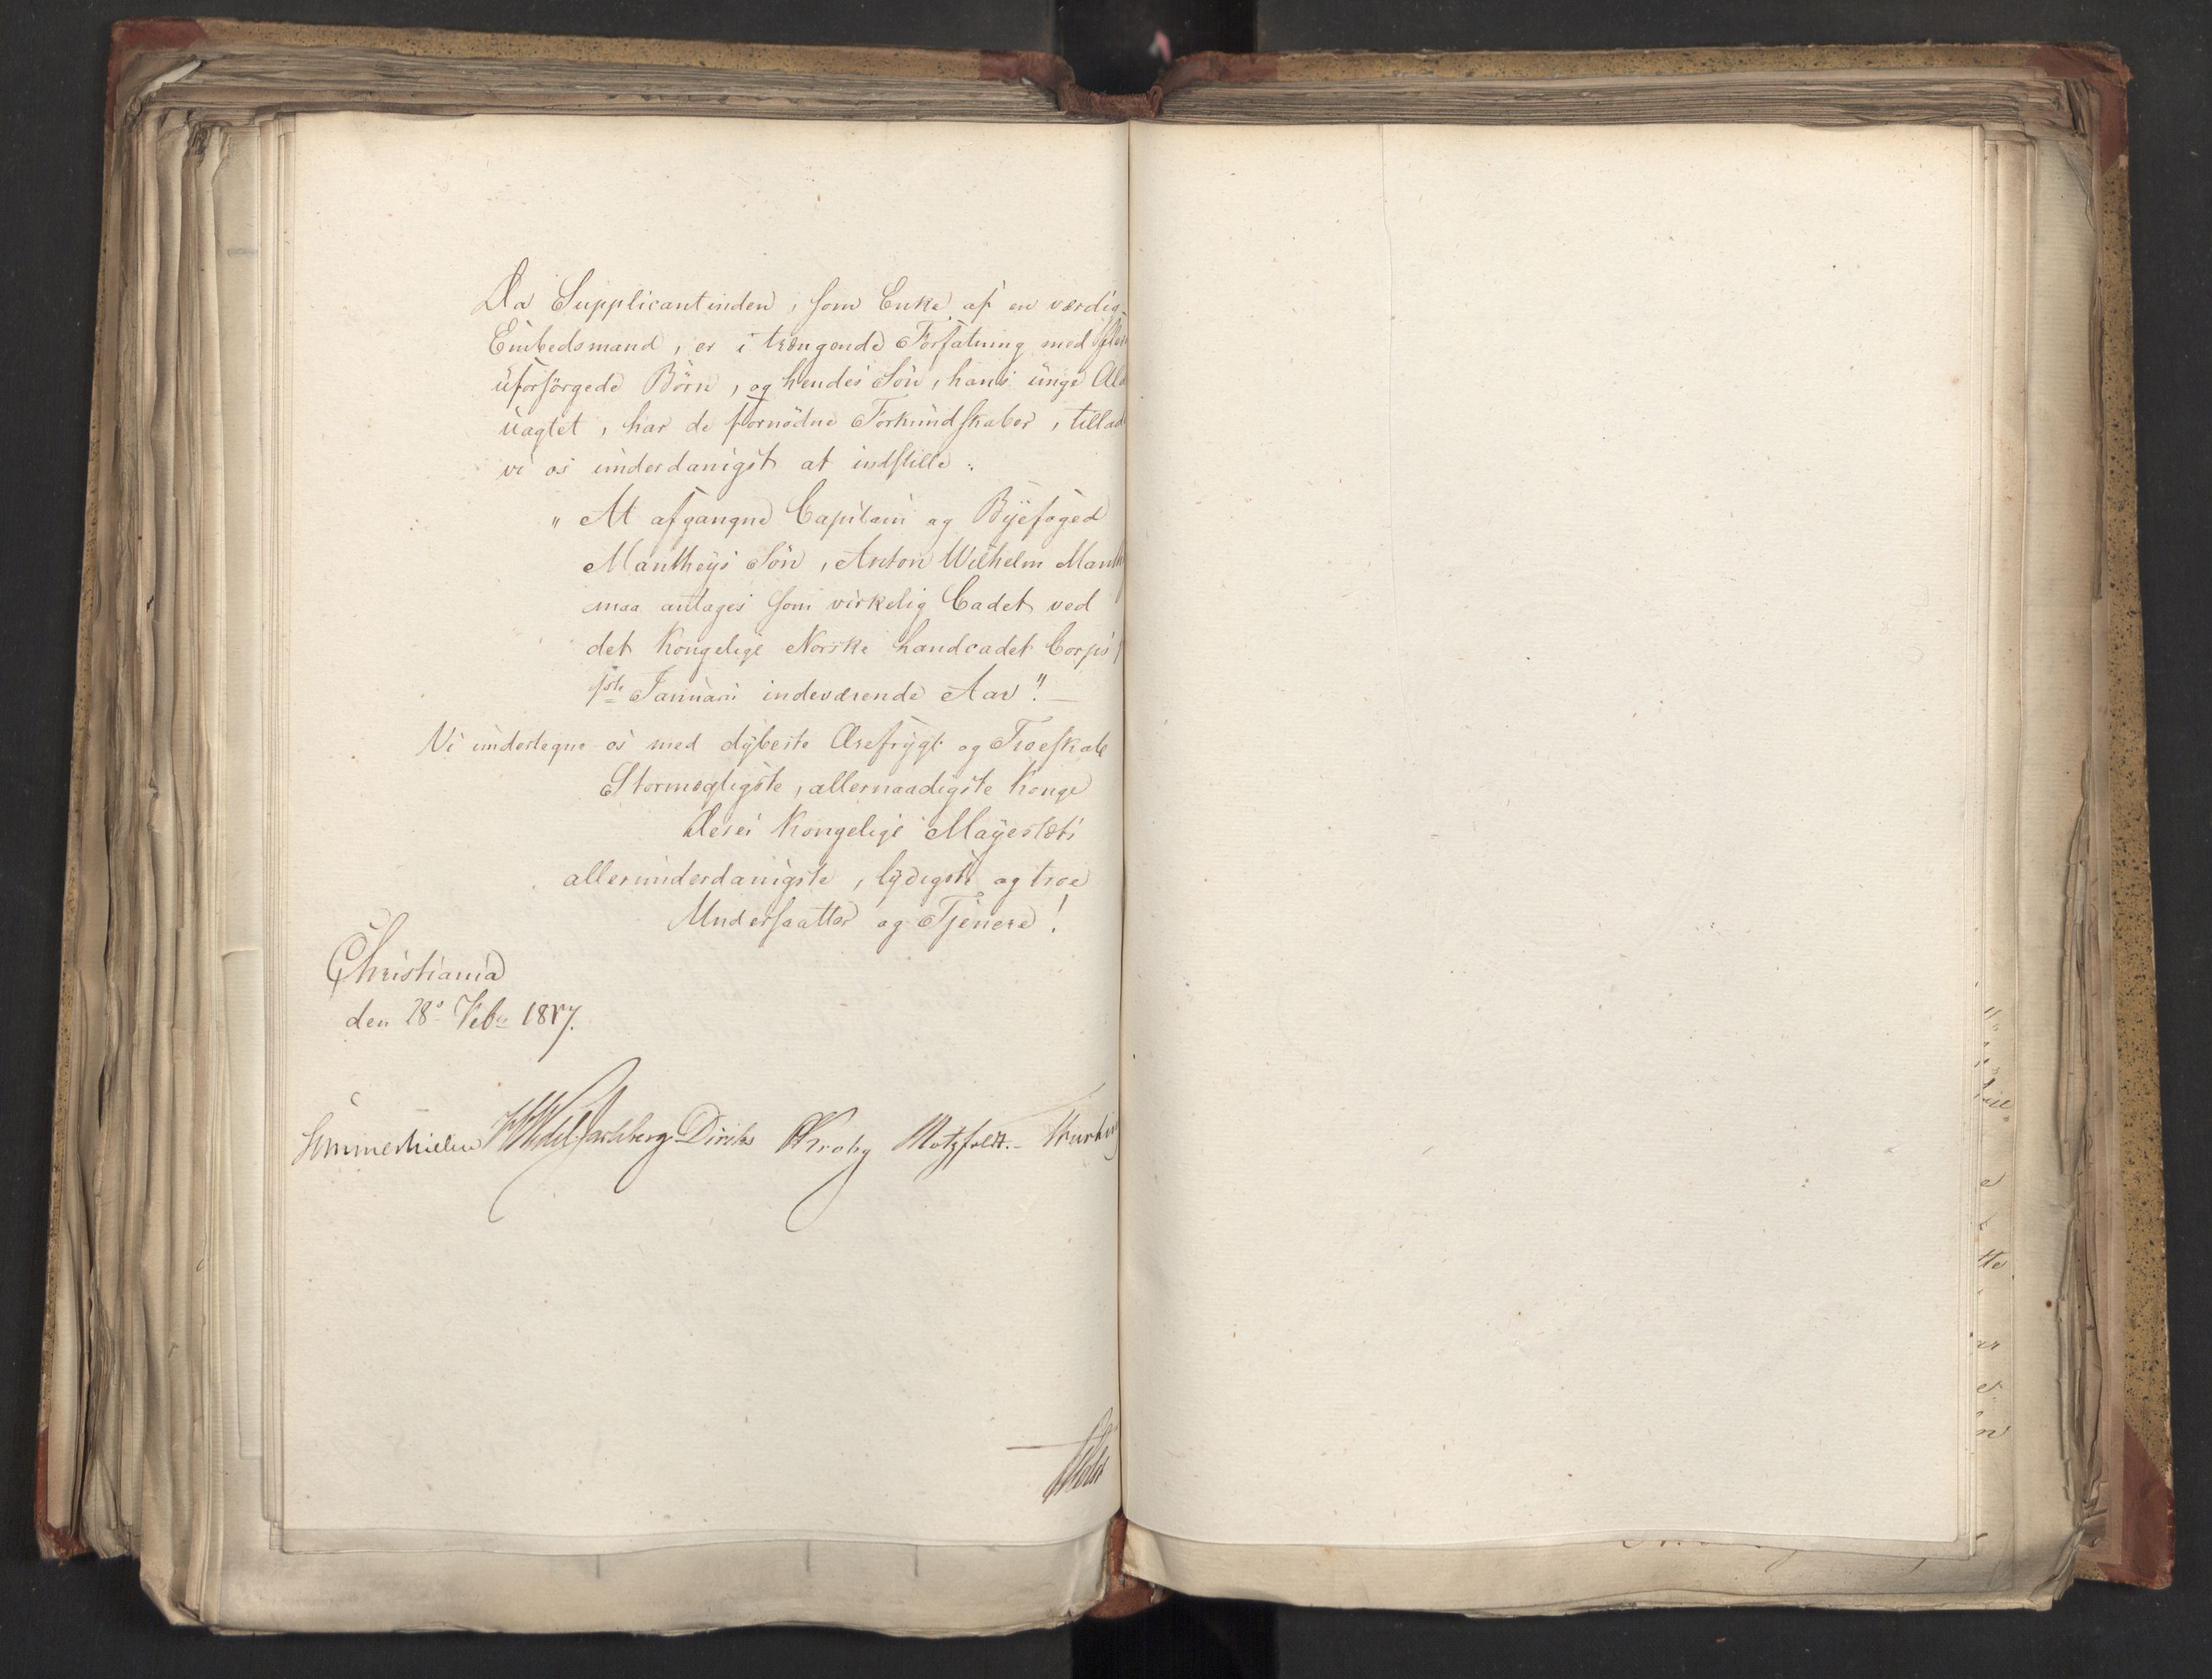 Da Supplicantinden, som Enke af en værdig
Embedsmand, er i trængende Forfatning med flere
uforsörgede Börn, og hendes Sön, hans unge Al
uagtet, har de fornödne Forkundskaber, tillad
vi os underdanigst at indstille:
"At afgangne Capitain og Byefoged
Mantheys Sön, Anton Wilhelm Manth
maa antages som virkelig Cadet ved
det Kongelige Norske Landcadet Corps f
1ste Januari indeværende Aar".
Vi undertegne os med dybeste Ærefrygt og Troeskab
Stormægtigste, allernaadigste Konge
Deres Kongelige Mayestæts
allerunderdanigste, lydigste og troe
Undersaatter og Tjenere!
Christiania
den 28d Febr 1817.
Sommerhielm Wedel Jarlsberg Diriks Krohg Motzfeldt.
Holst